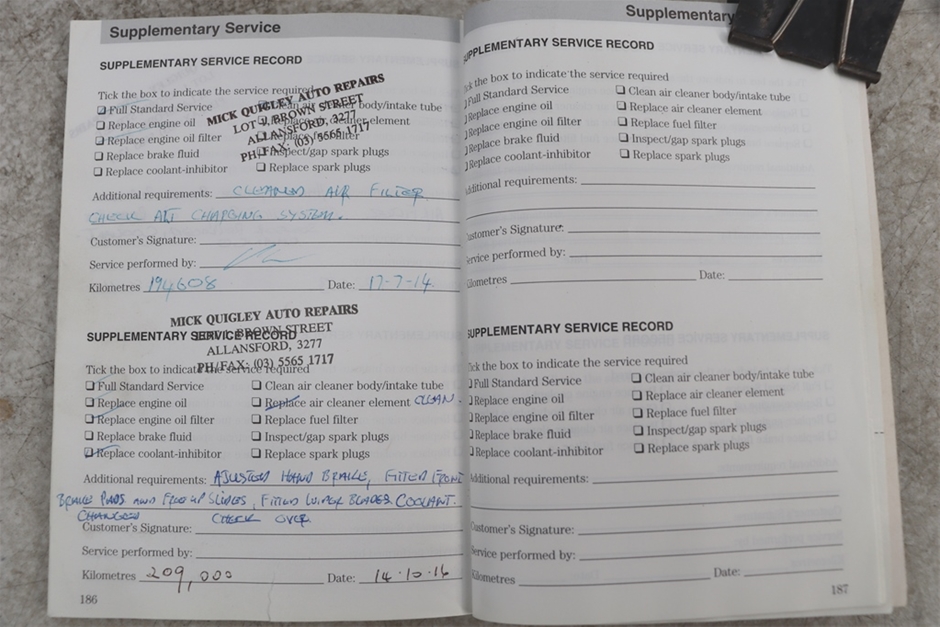 Supplementary Service
SUPPLEMENTARY SERVICE RECORD
Tick the box to indicate the service required
Full Standard Service
Clean air cleaner body/intake tube
Replace engine oil
Replace air cleaner element
Replace engine oil filter
Replace fuel filter
Replace brake fluid
Inspect/gap spark plugs
Replace coolant-inhibitor
Replace spark plugs
MICK QUIGLEY AUTO REPAIRS
LOT 1, BROWN STREET
ALLANSFORD, 3277
PH/FAX: (03) 5565 1717
Additional requirements: CLEANED AIR FILTER
CHECK ALT CHARGING SYSTEM.
Customer's Signature:
Service performed by:
Kilometres 194608 Date: 17-7-14.
MICK QUIGLEY AUTO REPAIRS
LOT 1, BROWN STREET
ALLANSFORD, 3277
PH/FAX: (03) 5565 1717
SUPPLEMENTARY SERVICE RECORD
Tick the box to indicate the service required
Full Standard Service
Clean air cleaner body/intake tube
Replace engine oil
Replace air cleaner element CLEAN.
Replace engine oil filter
Replace fuel filter
Replace brake fluid
Inspect/gap spark plugs
Replace coolant-inhibitor
Replace spark plugs
Additional requirements: AJUSTED HAND BRAKE, FITTED FRONT
BRAKE PADS AND FREE UP SLIDES, FITTED WIPER BLADES COOLANT.
CHANGED CHECK OVER
Customer's Signature:
Service performed by:
Kilometres 209,000 Date: 14.10.16
186
Supplementary
SUPPLEMENTARY SERVICE RECORD
Tick the box to indicate the service required
Full Standard Service
Clean air cleaner body/intake tube
Replace engine oil
Replace air cleaner element
Replace engine oil filter
Replace fuel filter
Replace brake fluid
Inspect/gap spark plugs
Replace coolant-inhibitor
Replace spark plugs
Additional requirements:
Customer's Signature:
Service performed by:
Kilometres Date:
SUPPLEMENTARY SERVICE RECORD
Tick the box to indicate the service required
Full Standard Service
Clean air cleaner body/intake tube
Replace engine oil
Replace air cleaner element
Replace engine oil filter
Replace fuel filter
Replace brake fluid
Inspect/gap spark plugs
Replace coolant-inhibitor
Replace spark plugs
Additional requirements:
Customer's Signature:
Service performed by:
Kilometres Date:
187